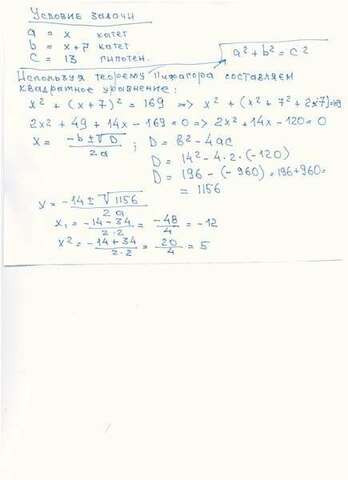 Условие задачи
a = x катет
b = x+7 катет
c = 13 гипотен.
a² + b² = c²
Используя теорему Пифагора составляем
квадратное уравнение:
x² + (x+7)² = 169 => x² + (x² + 7² + 2x7) = 169
2x² + 49 + 14x - 169 = 0 => 2x² + 14x - 120 = 0
x = (-b ± √D) / 2a ; D = b² - 4ac
D = 14² - 4·2·(-120)
D = 196 - (-960) = 196 + 960 =
= 1156
x = (-14 ± √1156) / 2a
x₁ = (-14-34) / 2·2 = -48/4 = -12
x² = (-14+34) / 2·2 = 20/4 = 5